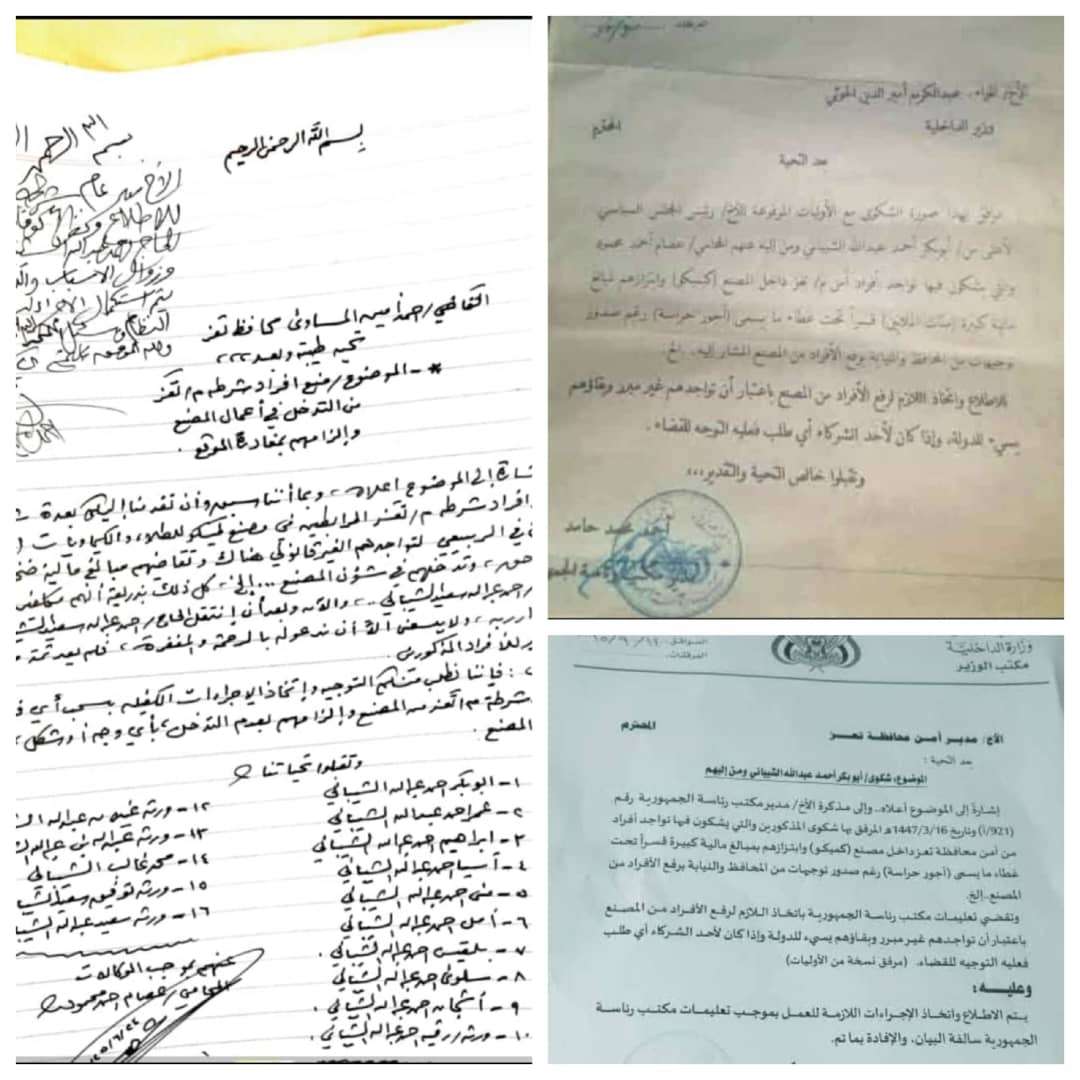 بسم الله الرحمن الرحيم
القاضي/ احمد امين المساوى محافظ تعز
تحيه طيبة وبعد،،،
*- الموضوع/ منع افراد شرطه م/ تعز
من التدخل في أعمال المصنع
وإلزامهم بمغادرة الموقع.
إلى الموضوع اعلاه، وبما أننا سبق وأن تقدمنا إليكم بعدة
افراد شرطه م/ تعز المرابطين في مصنع كميكو للطلاء والكيماويات
في الربيعي لتواجدهم الغير قانوني هناك وتقاضيهم مبالغ ماليه
وتدخلهم في شؤن المصنع ... إلخ، كل ذلك بذريعة أنهم
احمد عبدالله سعيد الشيباني.. والآن وبعد أن إنتقل الحاج/ احمد عبدالله سعيد
ربه، ولا يسعنى الا أن ندعوله بالرحمة والمغفرة، فلم يعد ثمة
للافراد المذكورين.
: فإننا نطلب منكم التوجيه وإتخاذ الإجراءات الكفيله بسحب أي
شرطة م/ تعز من المصنع وإلزامهم بعدم التدخل بأي وجه أو شكل
المصنع.
وتقبلوا تحياتنا
١- ابوبكر احمد عبدالله الشيباني
٢- عمر احمد عبدالله الشيباني
٣- ابراهيم احمد عبدالله الشيباني
٤- آسيا احمد عبدالله الشيباني
٥- منى احمد عبدالله الشيباني
٦- أمل احمد عبدالله الشيباني
٧- بلقيس احمد عبدالله الشيباني.
٨- سلوى احمد عبدالله الشيباني
٩- أشجان احمد عبدالله الشيباني.
١٠- ورثه/ رقيه احمد عبدالله الشيباني.
١٢- ورثة
١٣- ورثة عبدالله
١٤- محمد غالب الشيباني
١٥- ورثة توفيق سعيد
١٦- ورثه سعيد عبدالله
عنهم بموجب الوكالات
المحامي/ عصام احمد محمود
الأخ/ اللواء. عبدالكريم أمير الدين الحوثي
وزير الداخلية المحترم
بعد التحية
مرفق بهذا صورة الشكوى مع الأوليات المرفوعة للأخ/ رئيس المجلس السياسي
الأعلى من/ أبوبكر أحمد عبدالله الشيباني ومن إليه عنهم المحامي/ عصام أحمد محمود
والتي يشكون فيها تواجد أفراد أمن م/ تعز داخل المصنع (كميكو) وابتزازهم لمبالغ
مالية كبيرة (مئات الملايين) قسراً تحت غطاء ما يسمى (أجور حراسة) رغم صدور
توجيهات من المحافظ والنيابة برفع الأفراد من المصنع المشار إليه. الخ.
للاطلاع واتخاذ اللازم لرفع الأفراد من المصنع باعتبار أن تواجدهم غير مبرر وبقاؤهم
يسيء للدولة، وإذا كان لأحد الشركاء أي طلب فعليه التوجه للقضاء.
وتقبلوا خالص التحية والتقدير،،،
أحمد محمد حامد
وزارة الداخلية
مكتب الوزير
الموافق
المرفقات
الأخ/ مدير أمن محافظة تعز المحترم
بعد التحية:
الموضوع: شكوى/ أبو بكر أحمد عبدالله الشيباني ومن إليهم
إشارة إلى الموضوع أعلاه.. وإلى مذكرة الأخ/ مدير مكتب رئاسة الجمهورية رقم
(921/أ) وتاريخ 1447/3/16هـ المرفق بها شكوى المذكورين والتي يشكون فيها تواجد أفراد
من أمن محافظة تعز داخل مصنع (كميكو) وابتزازهم بمبالغ مالية كبيرة قسراً تحت
غطاء ما يسمى (أجور حراسة) رغم صدور توجيهات من المحافظ والنيابة برفع الأفراد من
المصنع..إلخ.
وتقضي تعليمات مكتب رئاسة الجمهورية باتخاذ اللازم لرفع الأفراد من المصنع
باعتبار أن تواجدهم غير مبرر وبقاؤهم يسيء للدولة وإذا كان لأحد الشركاء أي طلب
فعليه التوجيه للقضاء. (مرفق نسخة من الأوليات)
وعليه:
يتم الاطلاع واتخاذ الإجراءات اللازمة للعمل بموجب تعليمات مكتب رئاسة
الجمهورية سالفة البيان، والإفادة بما تم.